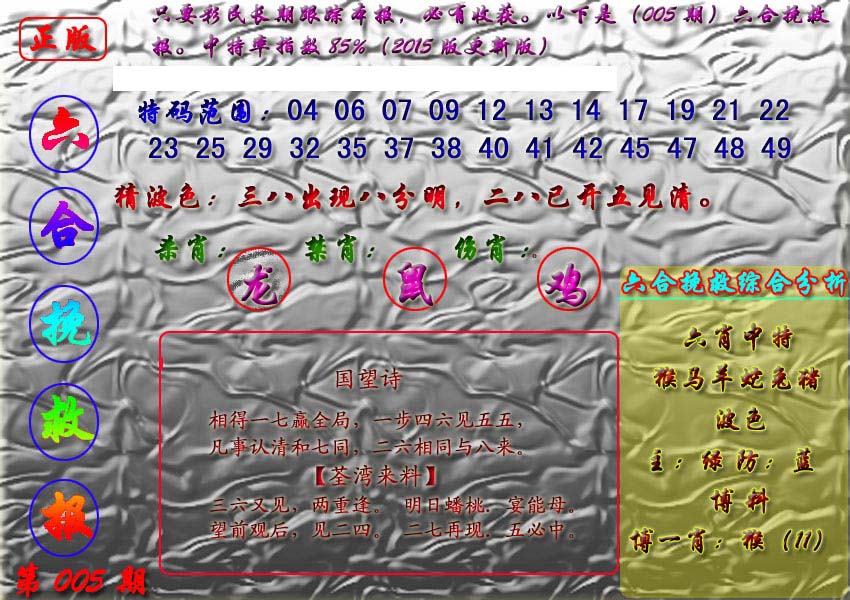 正版
只要彩民长期跟踪本报，必有收获。以下是（005期）六合挽救
报。中特率指数85%（2015版更新版）
六
合
挽
救
报
第005期
特码范围：04 06 07 09 12 13 14 17 19 21 22
23 25 29 32 35 37 38 40 41 42 45 47 48 49
猜波色：三八出现八分明，二八已开五见清。
杀肖： 禁肖： 伤肖：
龙 鼠 鸡
国望诗
相得一七赢全局，一步四六见五五，
凡事认清和七同，二六相同与八来。
【荃湾来料】
三六又见，两重逢。 明日蟠桃．宴能母。
望前观后，见二四。 二七再现．五必中。
六合挽救综合分析
六肖中特
猴马羊蛇兔猪
波色
主：绿防：蓝
博料
博一肖：猴（11）